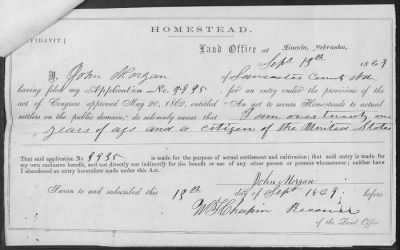 HOMESTEAD.
AFFIDAVIT.
Land Office at Lincoln, Nebraska,
Sept 13th 1869
I, John Morgan of Lancaster County Neb
having filed my Application No. 9935, for an entry under the provisions of the
act of Congress approved May 20, 1862, entitled "An act to secure Homesteads to actual
settlers on the public domain," do solemnly swear that I am over twenty one
years of age and a citizen of the United States
That said application No. 9935 is made for the purpose of actual settlement and cultivation; that said entry is made for
my own exclusive benefit, and not directly nor indirectly for the benefit or use of any other person or persons whomsoever; neither have
I abandoned an entry heretofore made under this Act.
John Morgan
Sworn to and subscribed this 13th day of Sept 1869, before
W H Chapin Receiver
of the Land Office